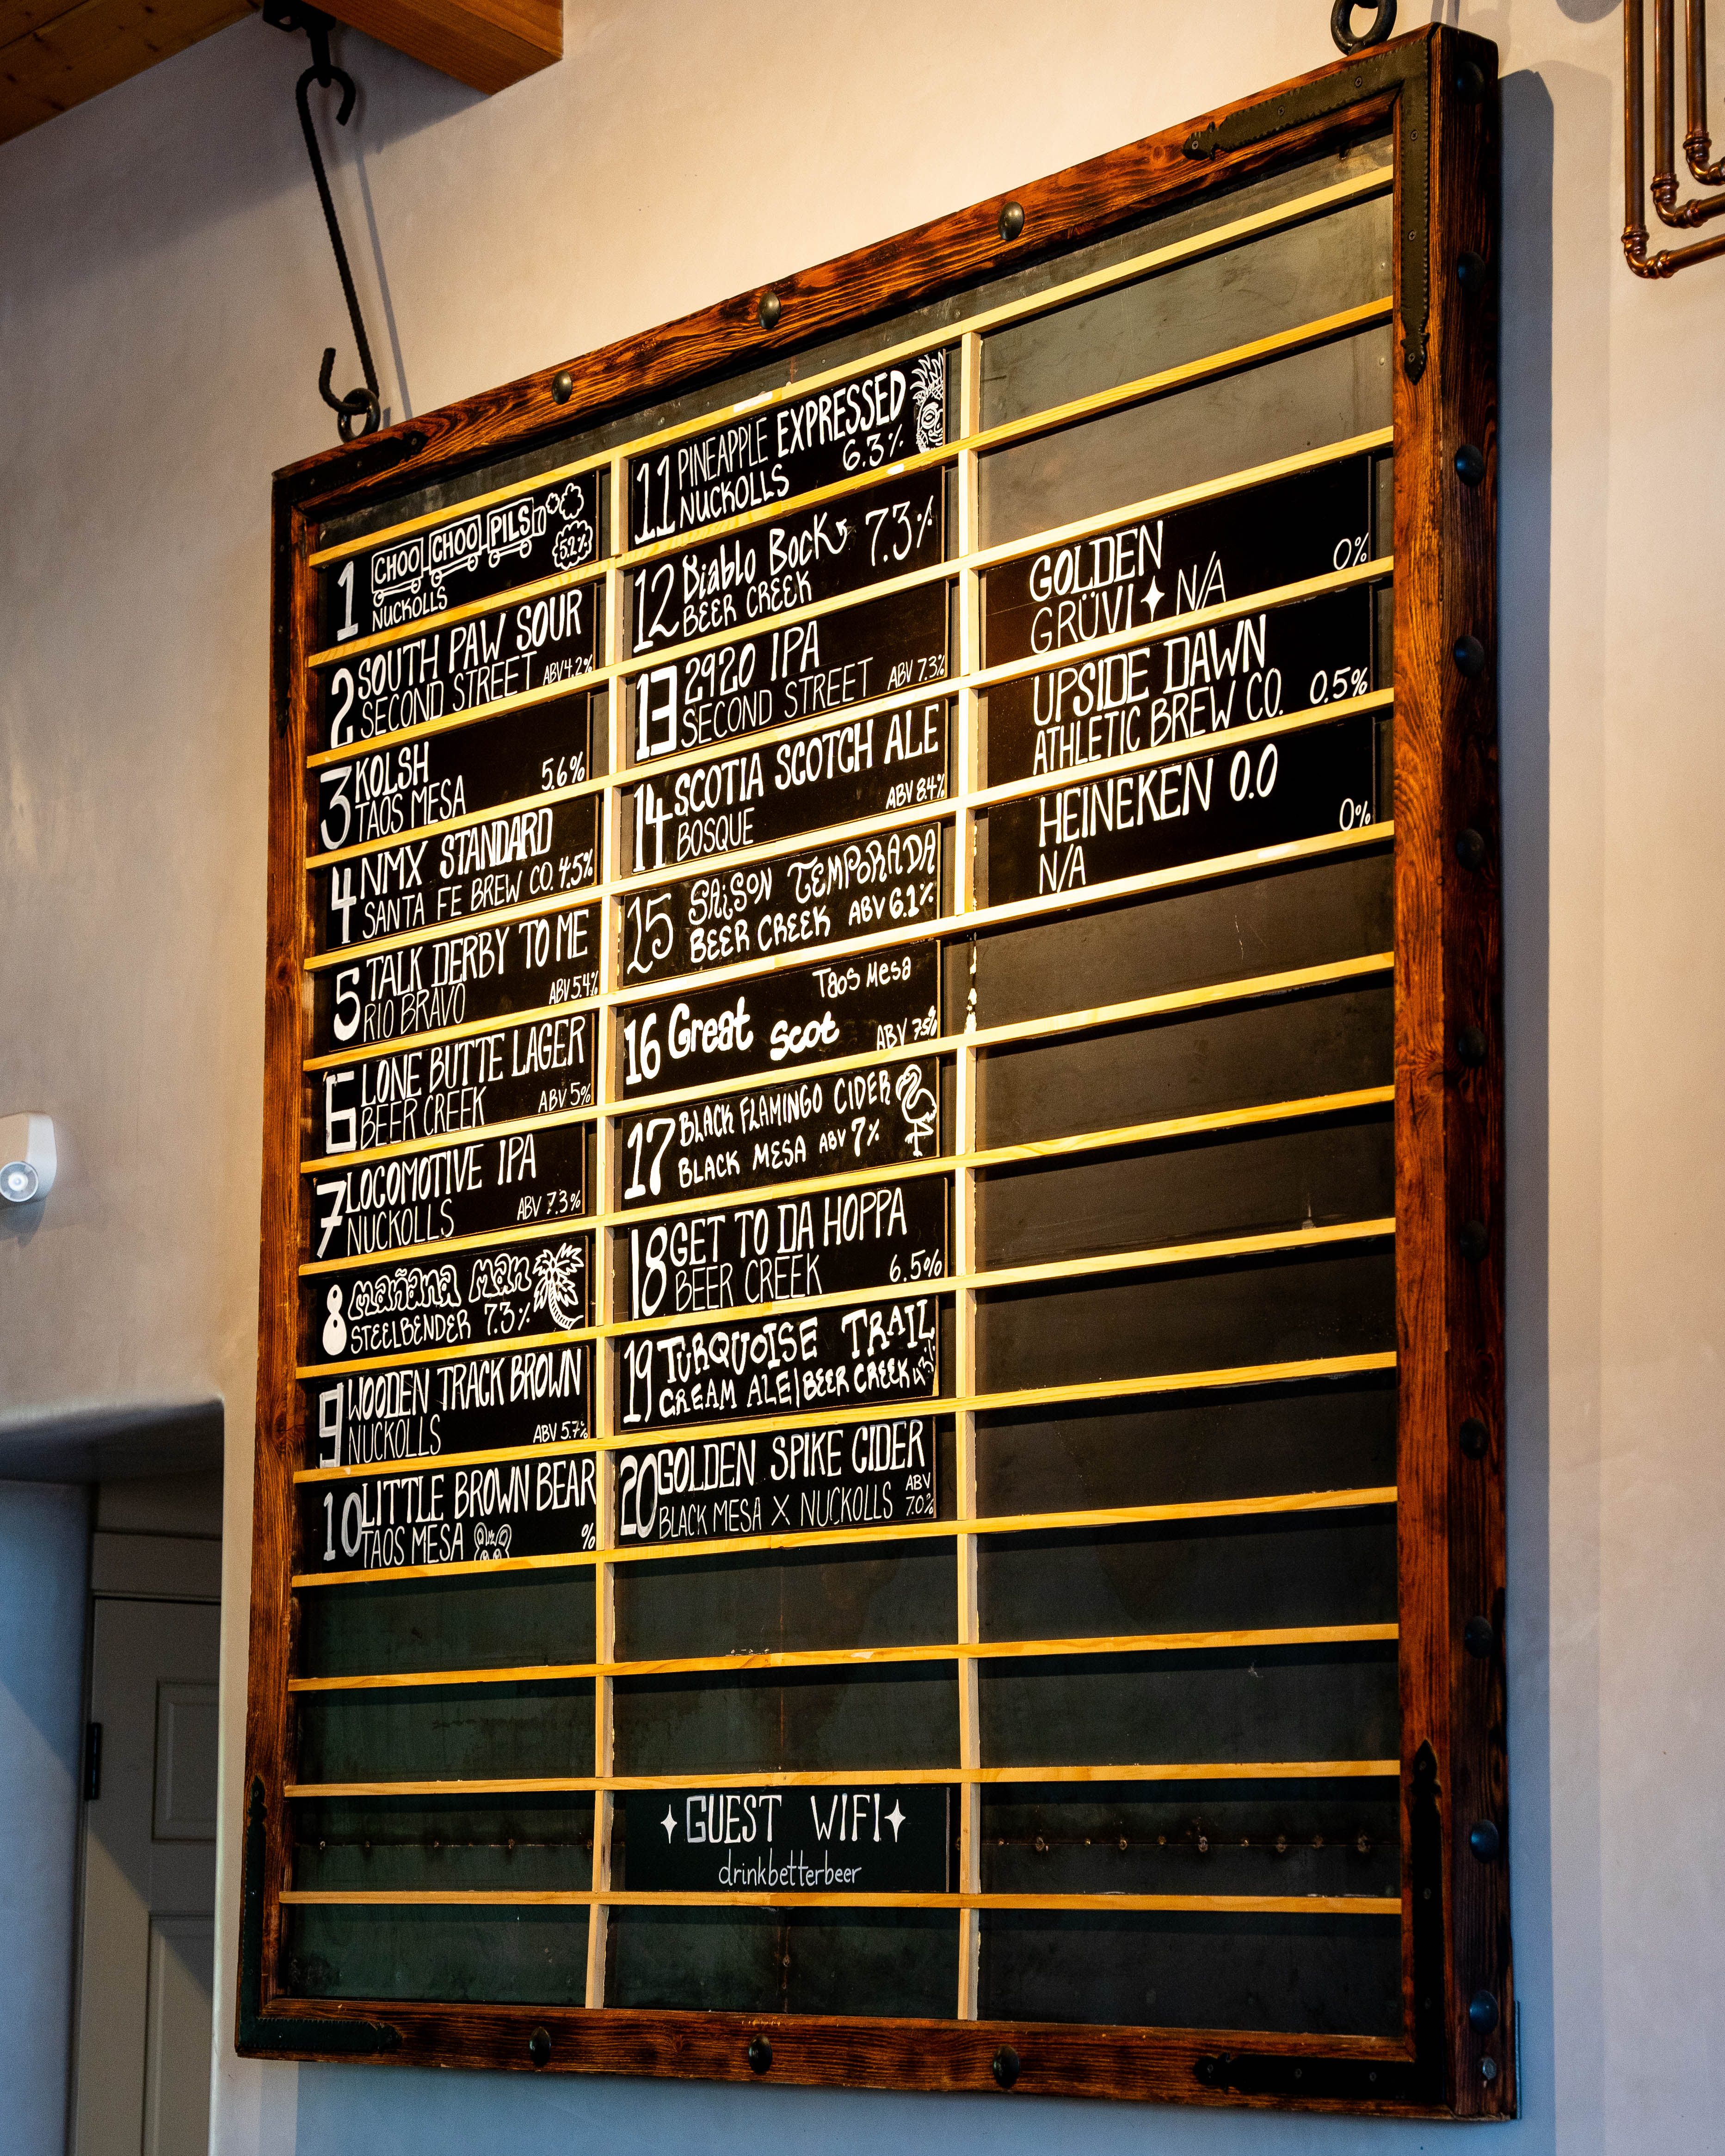 1 CHOO CHOO PILS
5.2%
NUCKOLLS
2 SOUTH PAW SOUR
SECOND STREET ABV 4.2%
3 KOLSH 5.6%
TAOS MESA
4 NMX STANDARD
SANTA FE BREW CO. 4.5%
5 TALK DERBY TO ME
RIO BRAVO ABV 5.4%
6 LONE BUTTE LAGER
BEER CREEK ABV 5%
7 LOCOMOTIVE IPA
NUCKOLLS ABV 7.3%
8 Mañana Man
STEELBENDER 7.3%
9 WOODEN TRACK BROWN
NUCKOLLS ABV 5.7%
10 LITTLE BROWN BEAR
TAOS MESA %
11 PINEAPPLE EXPRESSED
NUCKOLLS 6.3%
12 Diablo Bock 7.3%
BEER CREEK
13 2920 IPA
SECOND STREET ABV 7.3%
14 SCOTIA SCOTCH ALE
BOSQUE ABV 8.4%
15 SAiSON TEMPORADA
BEER CREEK ABV 6.1%
Taos Mesa
16 Great Scot ABV 7.5%
17 BLACK FLAMINGO CIDER
BLACK MESA ABV 7%
18 GET TO DA HOPPA
BEER CREEK 6.5%
19 TURQUOISE TRAIL
CREAM ALE|BEER CREEK
20 GOLDEN SPIKE CIDER
BLACK MESA X NUCKOLLS ABV 7.0%
GOLDEN 0%
GRÜVI N/A
UPSIDE DAWN
ATHLETIC BREW CO. 0.5%
HEINEKEN 0.0
N/A 0%
GUEST WIFI
drinkbetterbeer